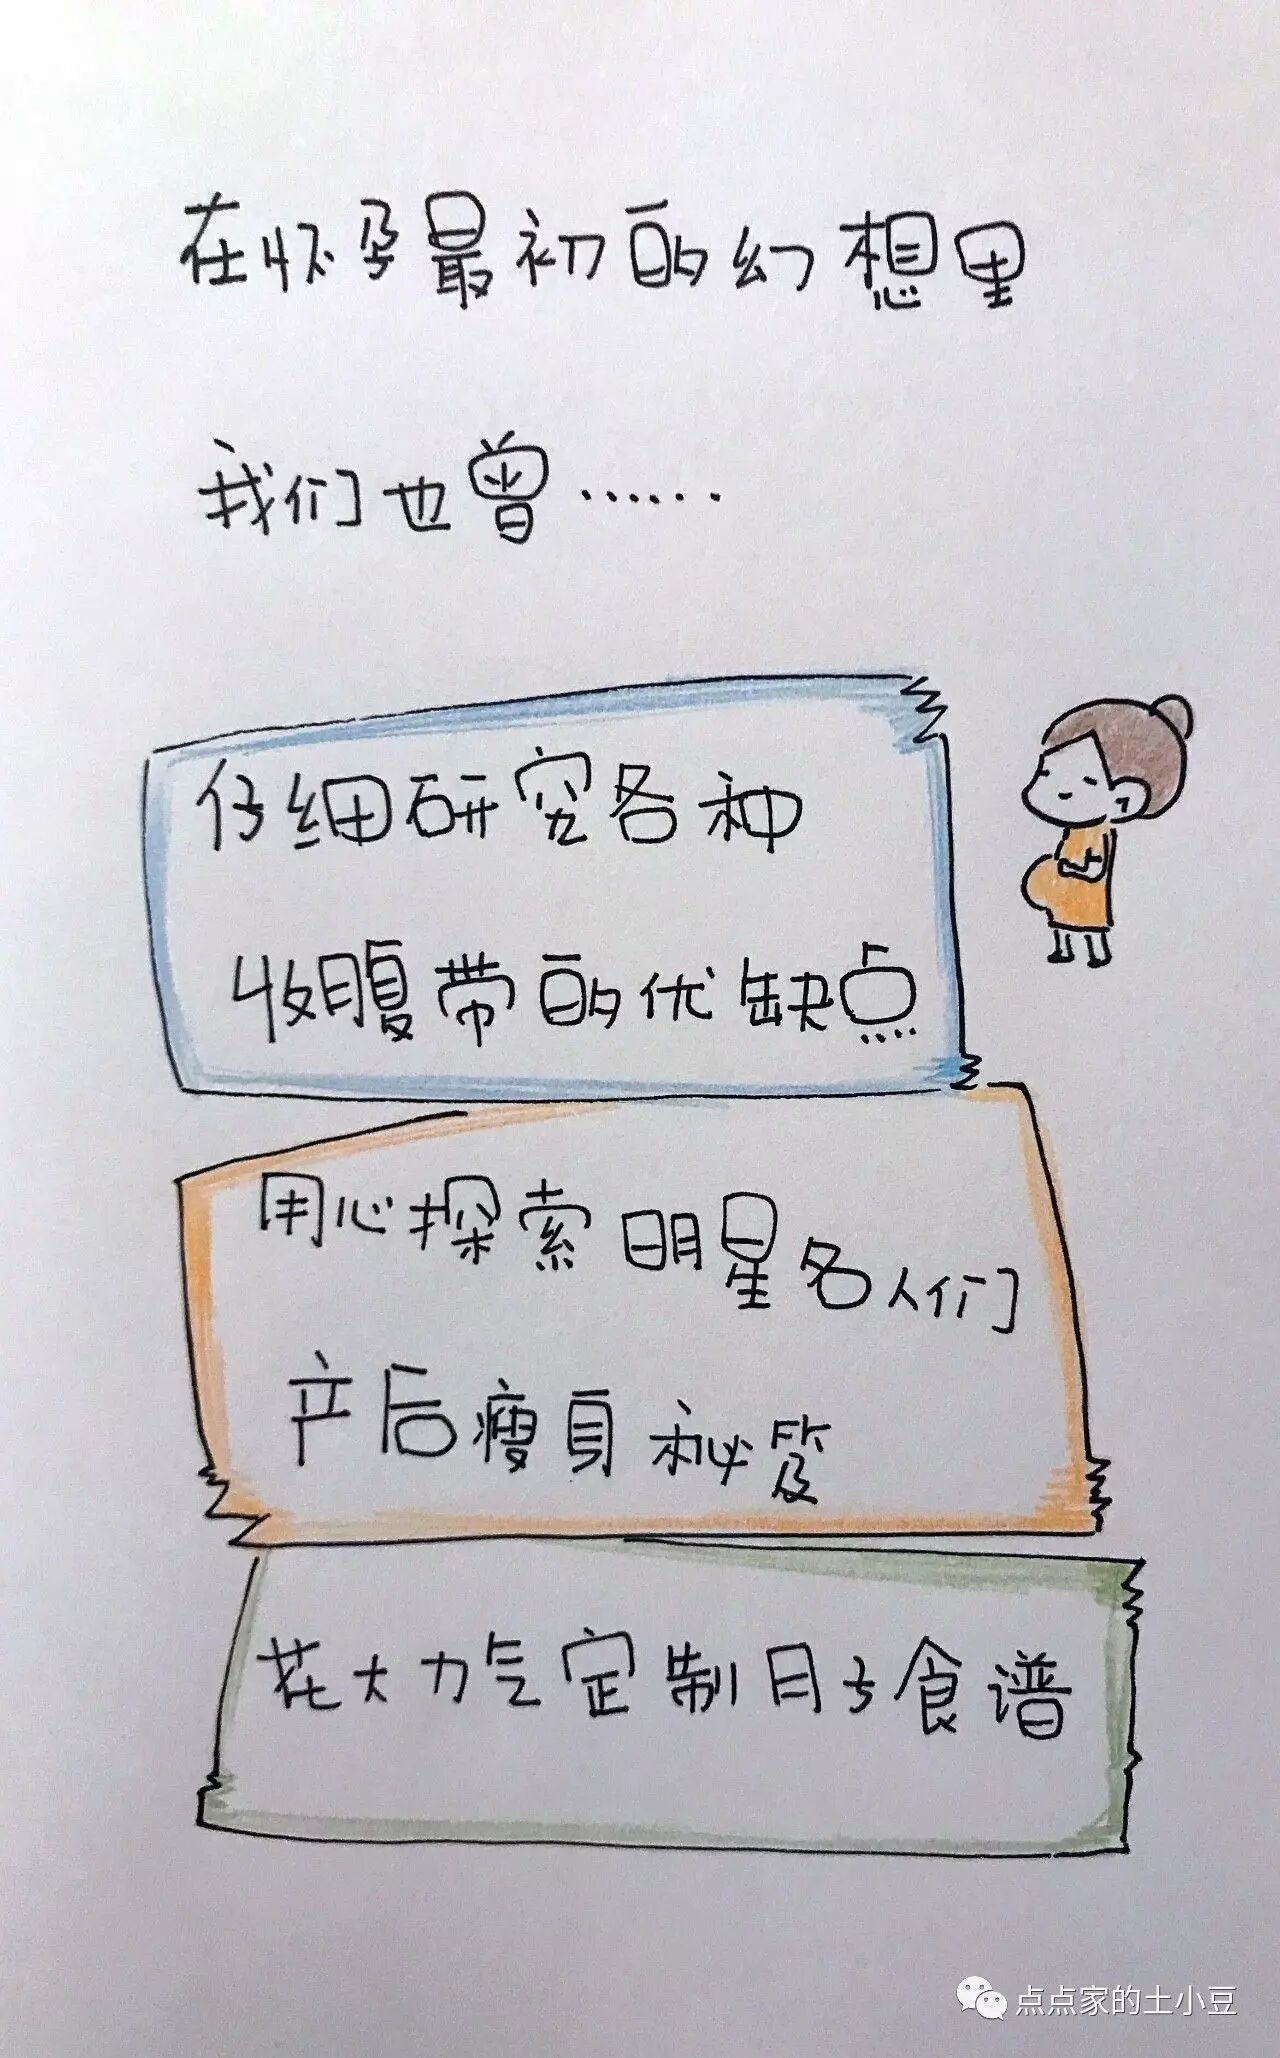 在怀孕最初的幻想里
我们也曾……
仔细研究各种
收腹带的优缺点
用心探索明星名人们
产后瘦身秘笈
花大力气定制月子食谱
点点家的土小豆